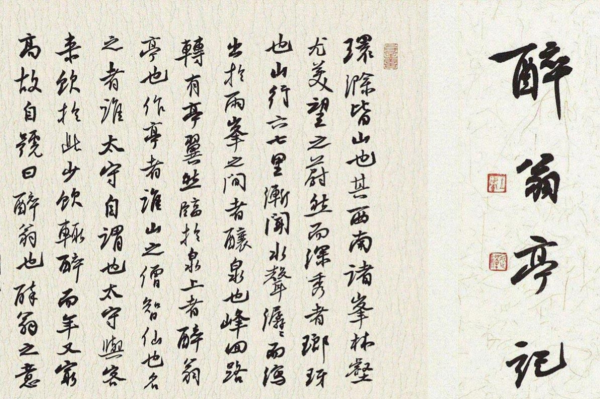 醉翁亭記
環滁皆山也其西南諸峯林壑
尤美望之蔚然而深秀者瑯玡
也山行六七里漸聞水聲潺〻而瀉
出於兩峯之間者釀泉也峰回路
轉有亭翼然臨於泉上者醉翁
亭也作亭者誰山之僧智仙也名
之者誰太守自謂也太守與客
来飲於此少飲輒醉而年又最
高故自號曰醉翁也醉翁之意